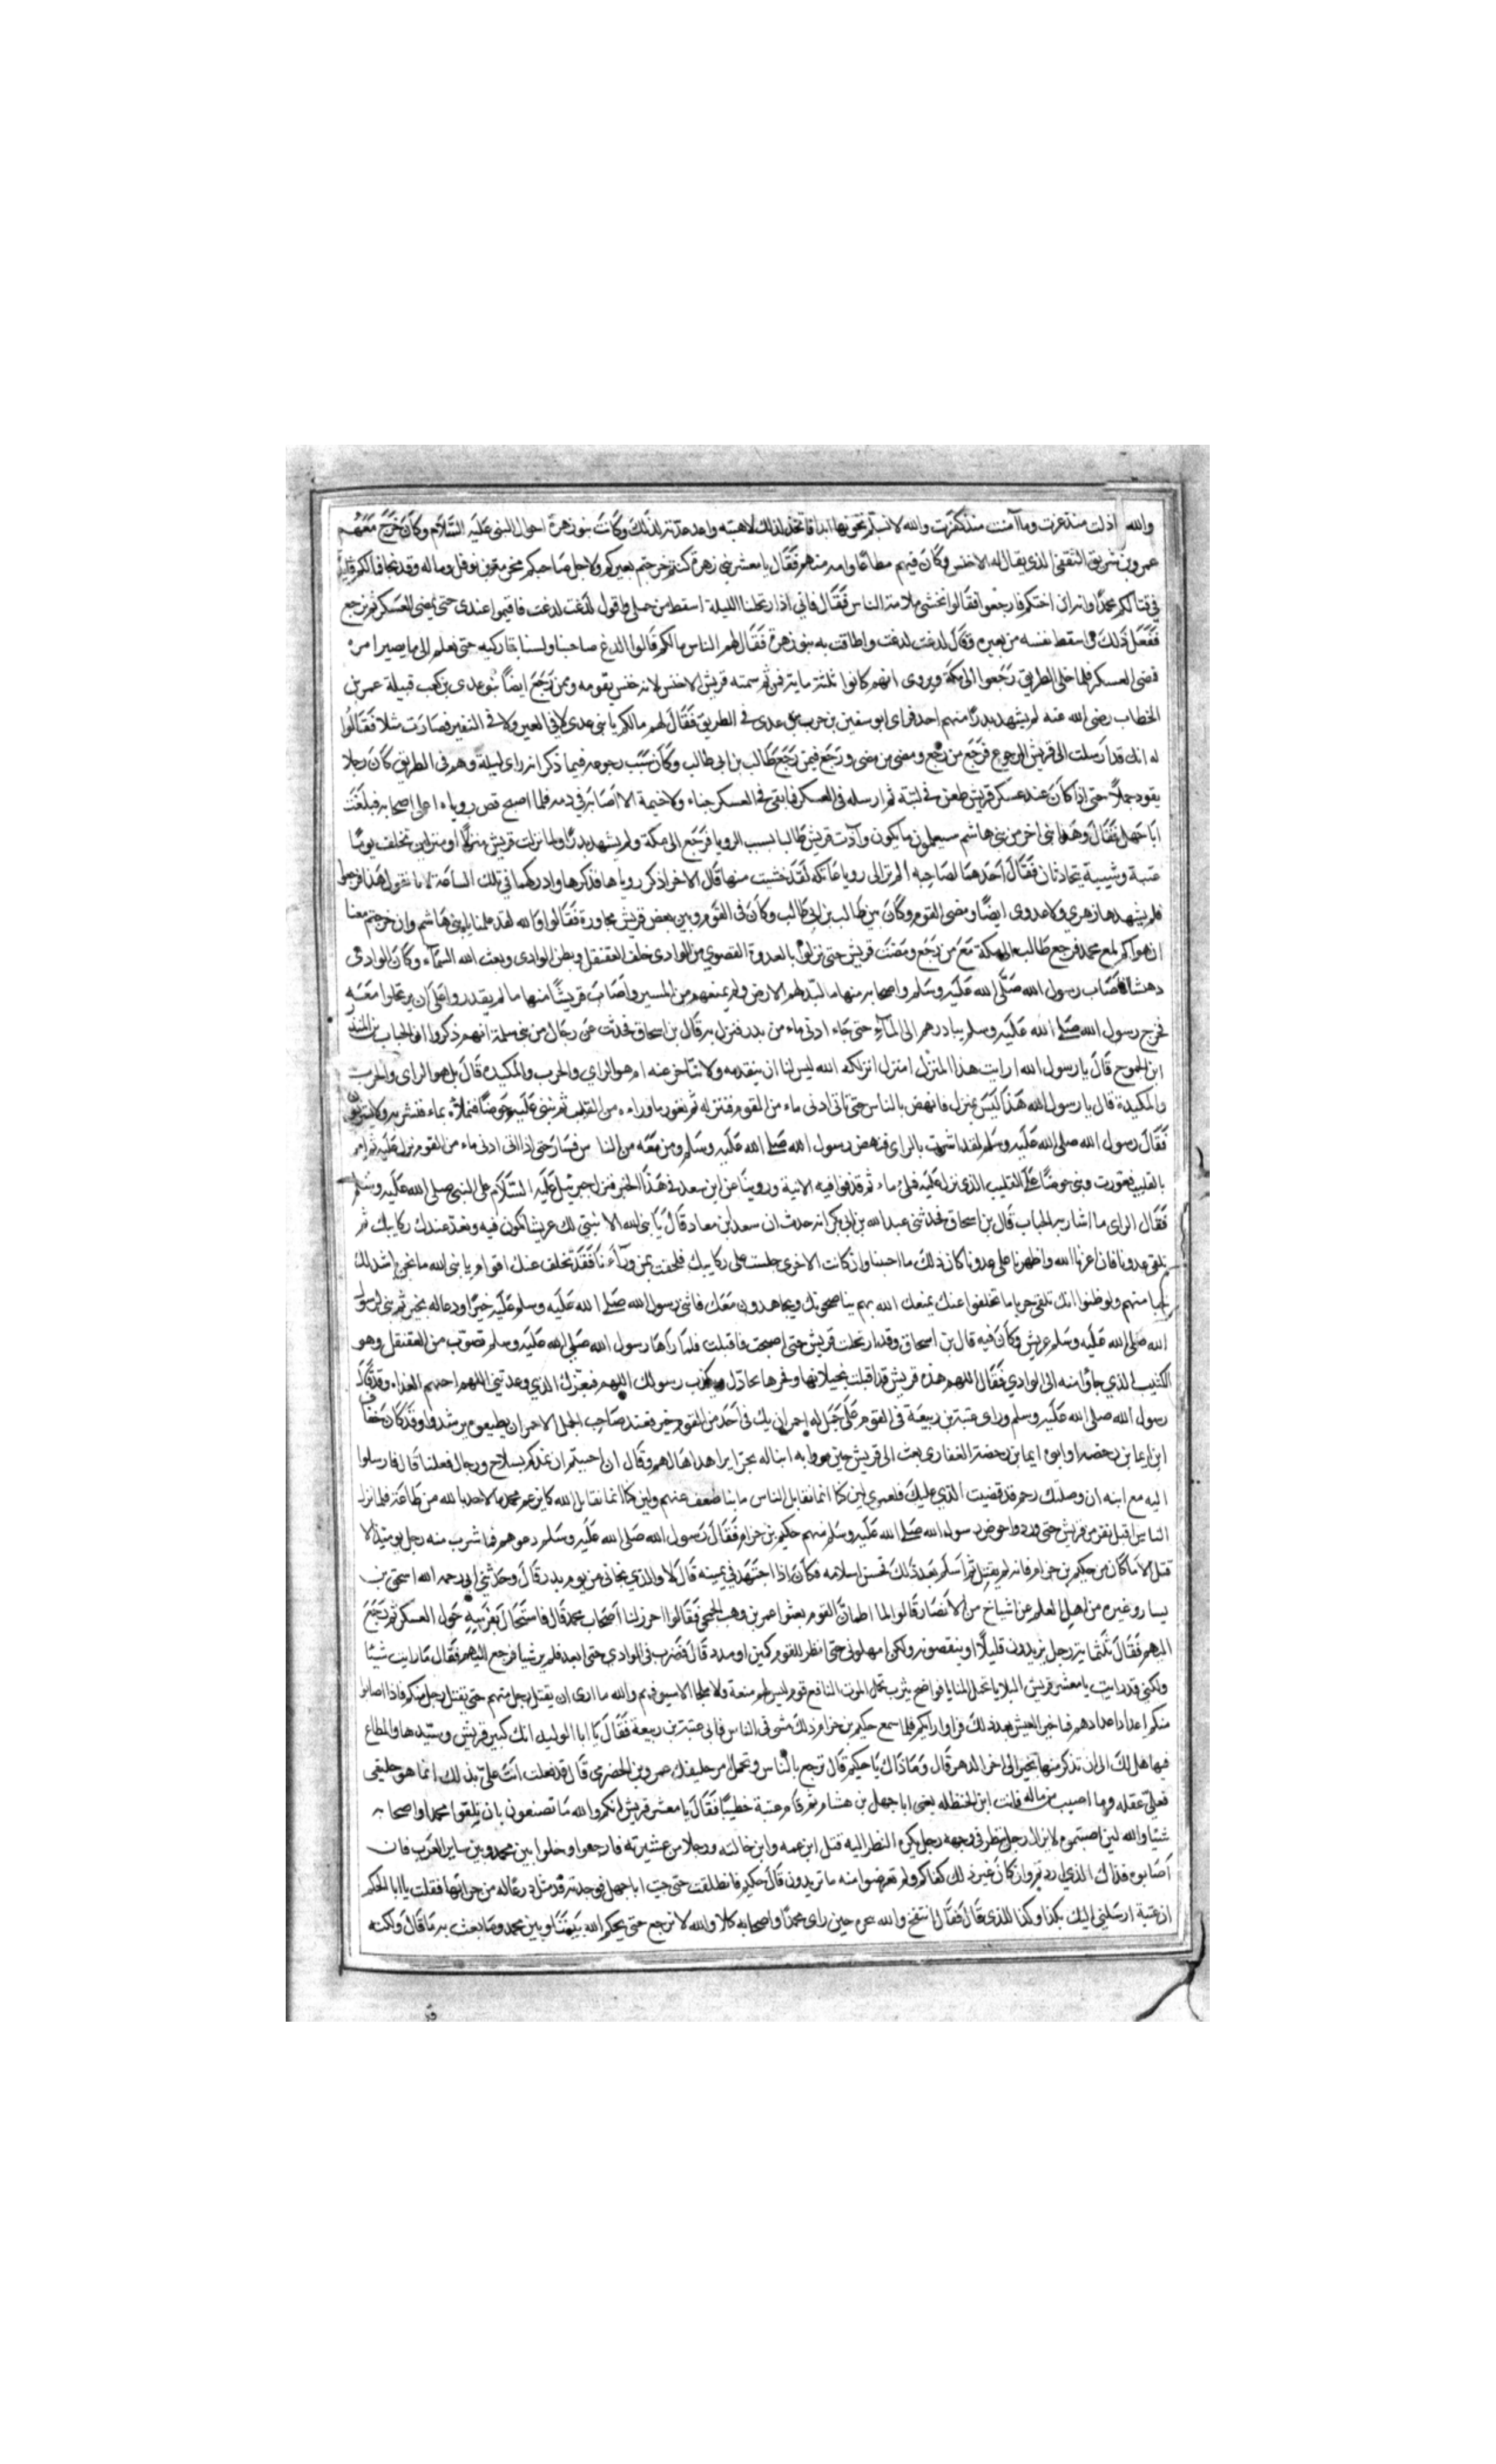 والله اذلت منذ عزت وما آمنت منذ كفرت والله لانسلم تحوزنها ابدا فاتخذ لذلك لاهبته واعد عدته لذلك وكانت بنو زهرة اخوال النبي عليه السلام وكان خرج معهم
عمرو بن شريق الثقفي الذي يقال له الاخنس وكان فيهم مطاعا وامه منهم فقال يا معشر بني زهرة كنتم خرجتم بعيركم ولاجل صاحبكم مخرمة بن نوفل وماله وقد نجا فمالكم
في قتالكم محمدا وانه ابن اختكم فارجعوا فقالوا نخشى ملامة الناس فقال فاني اذا رتحلنا الليلة اسقط من جملي واقول لدغت لدغت فاقيموا عندي حتى يمضي العسكر ثم نرجع
ففعل ذلك فاسقط نفسه من بعيره وقال لدغت لدغت واطاقت به بنو زهرة فقال لهم الناس مالكم قالوا الدغ صاحبنا ولسنا بتاركيه حتى نعلم الى ما يصير امره
فمضى العسكر فلما خلى الطريق رجعوا الى مكة ويروى انهم كانوا ثلثمايه رجل ثم سمته قريش الاخنس لانه خنس بقومه وممن رجع ايضا بنو عدي بن كعب قبيلة عمر بن
الخطاب رضي الله عنه لم يشهد بدرا منهم احد فراى ابو سفين بن حرب بني عدي في الطريق فقال لهم مالكم يا بني عدي لا في العير ولا في النفير فصارت مثلا فقالوا
له انك قد ارسلت الى قريش بالرجوع فرجع من رجع ومضى من مضى ورجع فيمن رجع طالب بن ابي طالب وكان سبب رجوعه فيما ذكر انه راى ليلة وهو في الطريق كان رجلا
يقود جملا حتى اذا كان عند عسكر قريش طعن في لبته ثم ارسله في العسكر فما بقي في العسكر خباء ولا خيمة الا اصابه في دمه فلما اصبح قص روياه على اصحابه فبلغت
ابا جهل فقال وهذا نبي اخر من بني هاشم سيعلمون ما يكون وآذت قريش طالبا بسبب الرويا فرجع الى مكة ولم يشهد بدرا ولما نزلت قريش منزلا او منزلين تخلف يوما
عتبة وشيبة يتحادثان فقال احدهما لصاحبه الم تر الى رويا عاتكة لقد خشيت منها قال الاخر اذكر روياها فذكرها وادركهما في تلك الساعة
فلم يشهدها زهري ولا عدوي ايضا ومضى القوم وكان بين طالب بن ابي طالب وكان في القوم وبين بعض قريش محاورة فقالوا والله لقد علمنا يا بني هاشم وان خرجتم معنا
ان هواكم لمع محمد فرجع طالب الى مكة مع من رجع ومضت قريش حتى نزلوا بالعدوة القصوي من الوادي خلف العقنقل وبطن الوادي وبعث الله السماء وكان الوادي
دهشا فاصاب رسول الله صلى الله عليه وسلم واصحابه منها ما لبد لهم الارض ولم يمنعهم من المسير واصاب قريشا منها ما لم يقدروا على ان يرتحلوا معه
فخرج رسول الله صلى الله عليه وسلم يبادرهم الى الماء حتى جاء ادنى ماء من بدر فنزل به قال بن اسحاق فحدثت عن رجال من بني سلمة انهم ذكروا ان الحباب بن المنذر
ابن الجموح قال يا رسول الله ارايت هذا المنزل امنزل انزلكه الله ليس لنا ان ينقدمه ولا نتاخر عنه ام هو الراي والحرب والمكيدة قال بل هو الراي والحرب
والمكيدة قال يا رسول الله هذا ليس بمنزل فانهض بالناس حتى ناتى ادنى ماء من القوم فننزله ثم نغور ما وراءه من القلب ثم نبني عليه حوضا فنملاه بماء فنشرب ولا يشربون
فقال رسول الله صلى الله عليه وسلم لقد اشرت بالراى فنهض رسول الله صلى الله عليه وسلم ومن معه من الناس فسار حتى اذا اتى ادنى ماء من القوم نزل عليه ثم امر
بالقليب فعورت وبني حوضا على القليب الذي نزل عليه فملئ ماء ثم قذفوا فيه الانية وروينا عن ابن سعد في هذا الخبر فنزل جبرئيل عليه السلام على النبي صلى الله عليه وسلم
فقال الراى ما اشار به الحباب قال بن اسحاق فحدثني عبدالله بن ابي بكر انه حدث ان سعد بن معاذ قال يا نبي الله الا نبتني لك عريشا تكون فيه ونعد عندك ركايبك ثم
نلقى عدونا فان اعزنا الله واظهرنا على عدونا كان ذلك ما احببنا وان كانت الاخرى جلست على ركايبك فلحقت بمن وراءنا فقد تخلف عنك اقوام يا نبي الله ما نحن باشد لك
حبا منهم ولو ظنوا انك تلقى حربا ما تخلفوا عنك يمنعك الله بهم يناصحونك ويجاهدون معك فاثنى رسول الله صلى الله عليه وسلم عليه خيرا ودعا له بخير ثم بني لرسول
الله صلى الله عليه وسلم عريش وكان فيه قال بن اسحاق وقد ارتحلت قريش حتى اصبحت فاقبلت فلما راها رسول الله صلى الله عليه وسلم تصوب من العقنقل وهو
الكثيب الذي جاؤا منه الى الوادي فقال اللهم هذه قريش قد اقبلت بخيلائها وفخرها تحادك وتكذب رسولك اللهم فنصرك الذي وعدتني اللهم احنهم الغداة وقد قال
رسول الله صلى الله عليه وسلم وراى عتبة بن ربيعة في القوم على جمل له احمر ان يك في احد من القوم خير فعند صاحب الجمل الاحمر ان يطيعوه يرشدوا وقد كان خفاف
ابن ايما بن رحضه او ابوه ايما بن رحضة الغفاري بعث الى قريش حين مروا به ابنا له بجزاير اهداها لهم وقال ان احببتم ان نمدكم بسلاح ورجال فعلنا قال فارسلوا
اليه مع ابنه ان وصلتك رحم قد قضيت الذي عليك فلعمري لين كنا انما نقابل الناس ما بنا ضعف عنهم ولين كنا انما نقابل الله كما يزعم محمد ما لاحد بالله من طاقة فلما نزل
الناس اقبل نفر من قريش حتى وردوا حوض رسول الله صلى الله عليه وسلم منهم حكيم بن حزام فقال رسول الله صلى الله عليه وسلم دعوهم فما شرب منه رجل يوميذ الا
قتل الا ما كان من حكيم بن حزام فانه لم يقتل ثم اسلم بعد ذلك فحسن اسلامه فكان اذا اجتهد في يمينه قال لا والذي نجاني من يوم بدر قال وحدثني ابي رحمه الله اسحق بن
يسار وغيره من اهل العلم عن اشياخ من الانصار قالوا لما اطمان القوم بعثوا عمير بن وهب الجمحي فقالوا احرز لنا اصحاب محمد قال فاستحال بفرسه حول العسكر ثم رجع
اليهم فقال ثلثمايه رجل يزيدون قليلا او ينقصونه ولكن امهلوني حتى انظر للقوم كمين او مدد قال فضرب في الوادي حتى ابعد فلم ير شيا فرجع اليهم فقال ما رايت شيئا
ولكني قد رايت يا معشر قريش البلايا تحمل المنايا نواضح يثرب تحمل الموت الناقع قوم ليس لهم منعة ولا ملجا الا سيوفهم والله ما ارى ان يقتل رجل منهم حتى يقتل رجل منكم فاذا اصابوا
منكم اعدادا عدادهم فما خير العيش بعد ذلك فروا رايكم فلما سمع حكيم بن حزام ذلك مشى في الناس فاتى عتبة بن ربيعة فقال يا ابا الوليد انك كبير قريش وسيدها والمطاع
فيها هل لك الى ان تذكر منها بخير الى اخر الدهر قال وما ذاك يا حكيم قال ترجع بالناس وتحمل امر حليفك عمرو بن الحضرمى قال قد فعلت انت علي بذلك انما هو حليفي
فعلي عقله وما اصيب من ماله فات ابن الحنظله يعني ابا جهل بن هشام ثم قام عتبة خطيبا فقال يا معشر قريش انكم والله ما تصنعون بان تلقوا محمدا واصحابه
شيئا والله لين اصبتموه لا يزال رجل ينظر في وجهه رجل يكره النظر اليه قتل ابن عمه وابن خالته ورجلا من عشيرته فارجعوا وخلوا بين محمد وبين ساير العرب فان
اصابوه فذاك الذي اردتم وان كان غير ذلك كفاكم ولم تعرضوا منه ما تريدون قال حكيم فانطلقت حتى جيت ابا جهل فوجدته قد نثل درعا له من جرابها فقلت يا ابا الحكم
ان عتبة ارسلني اليك بكذا وكذا للذي قال فقال انتفخ والله سحره حين راى محمدا واصحابه كلا والله لا نرجع حتى يحكم الله بيننا وبين محمد وما بعتبة ما قال ولكنه